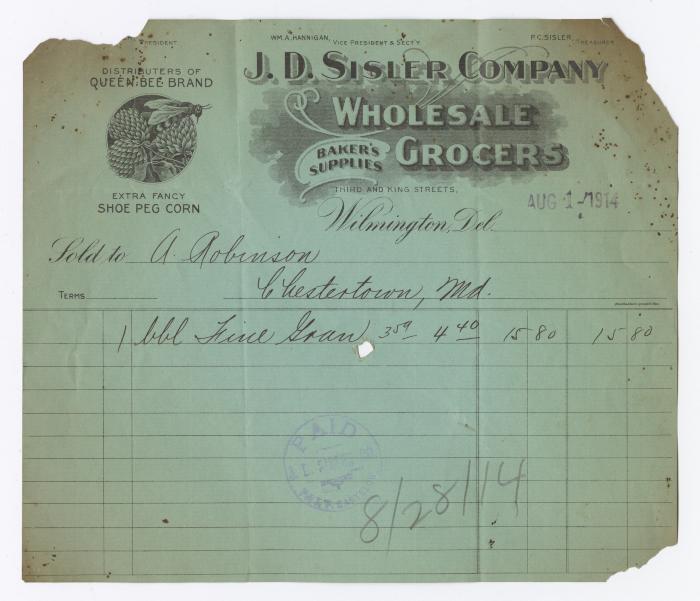 PRESIDENT. WM. A. HANNIGAN, VICE PRESIDENT & SECT'Y P. C. SISLER, TREASURER
DISTRIBUTERS OF
QUEEN BEE BRAND
EXTRA FANCY
SHOE PEG CORN
J. D. SISLER COMPANY
WHOLESALE
GROCERS
BAKER'S
SUPPLIES
THIRD AND KING STREETS,
AUG 1 - 1914
Wilmington, Del.
Sold to A. Robinson
TERMS Chestertown, Md.
1 bbl Fine Gran 359 4 40 15 80 15 80
PAID
8/28/14